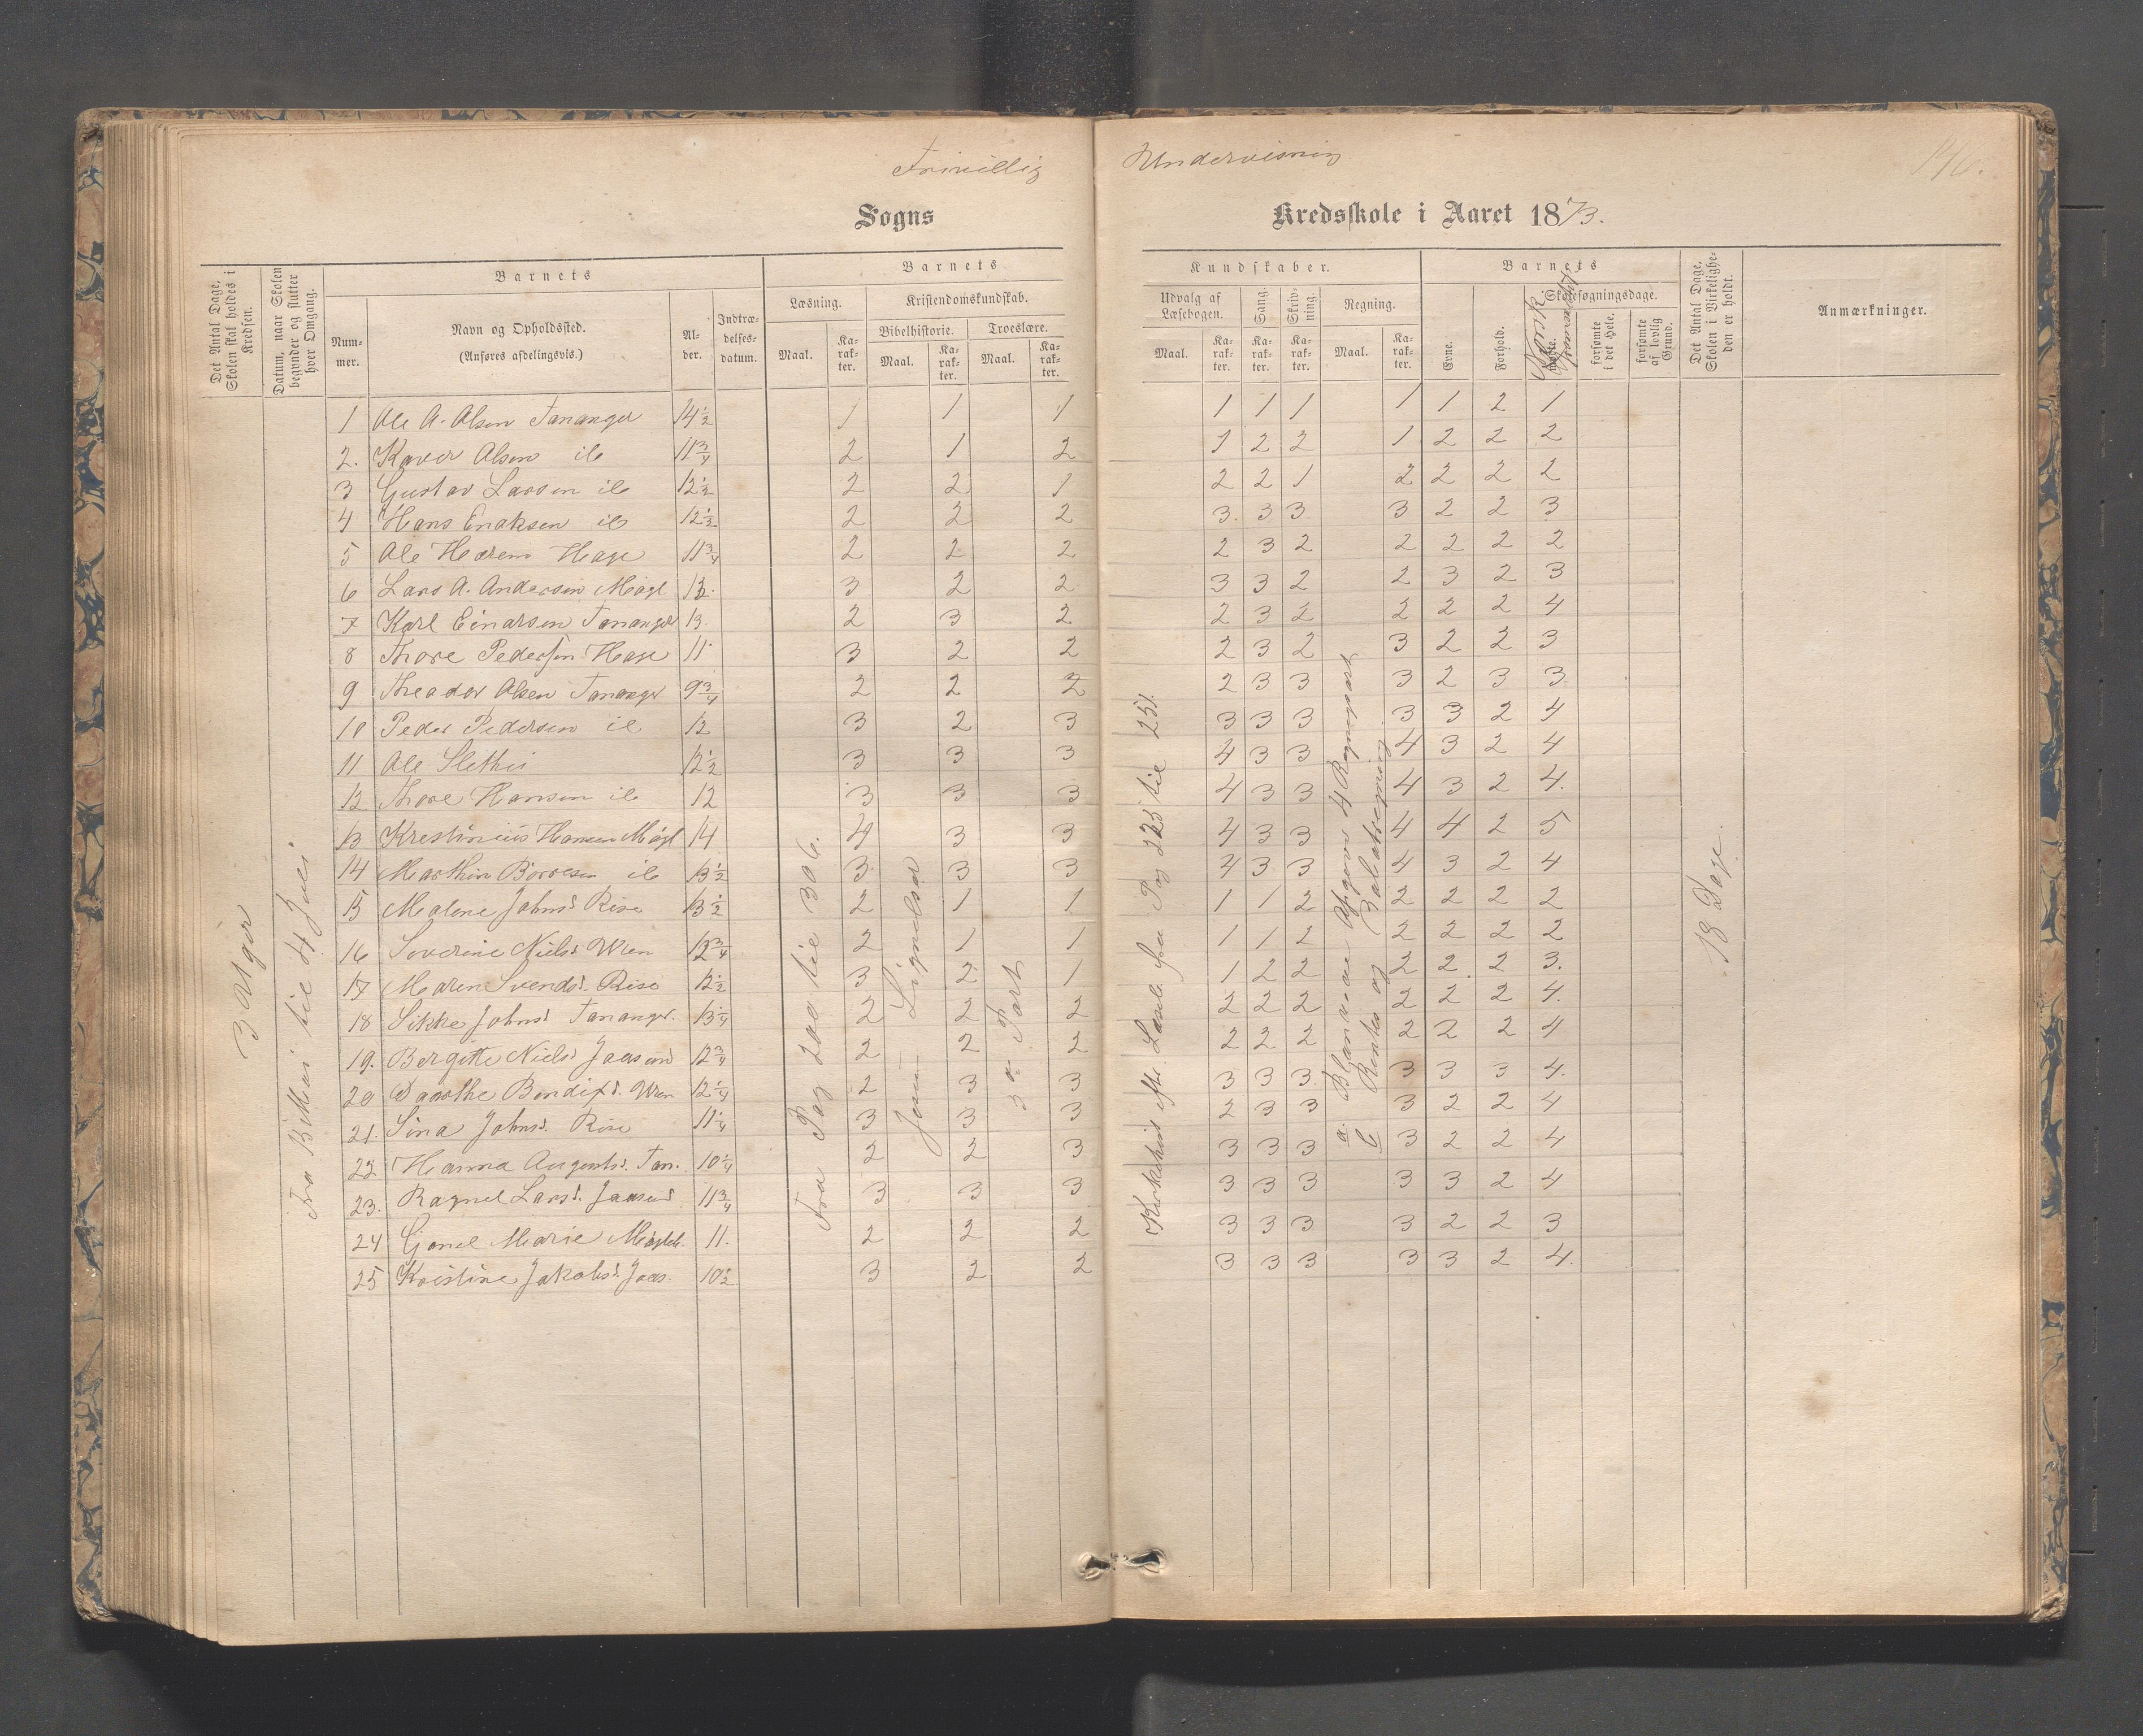 Frivillig Undervisning
146.
Sogns Kredsskole i Aaret 1873.
Det Antal Dage, Skolen skal holdes i Kredsen.
Datum, naar Skolen begynder og slutter hver Omgang.
Barnets
Nummer.
Navn og Opholdssted.
(Anføres afdelingsvis.)
Alder.
Indtrædelsesdatum.
Barnets
Læsning.
Maal.
Karakter.
Kristendomskundskab.
Bibelhistorie.
Maal.
Karakter.
Troeslære.
Maal.
Karakter.
Kundskaber.
Udvalg af Læsebogen.
Maal.
Karakter.
Sang.
Karakter.
Skrivning.
Karakter.
Regning.
Maal.
Karakter.
Barnets
Evne.
Forhold.
Skolesøgningsdage.
Norsk
forsømte i det Hele.
forsømte af lovlig Grund.
Det Antal Dage, Skolen i Virkeligheden er holdt.
Anmærkninger.
3 Uger
til 4 Juli
Fra Pag 200 til 306.
3 a Part
Læseb. fra Pag 225 til 251.
Rentes og
18 Dage.
1 Ole A. Olsen Tananger 14 1/2 1 1 1 1 1 1 1 1 2 1
2. Kaver Olsen ib 11 3/4 2 1 2 1 2 2 1 2 2 2
3 Gustav Larsen ib 12 1/2 2 2 1 2 2 1 2 2 2 2
4 Hans Enoksen ib 12 1/2 2 2 2 3 3 3 3 2 2 3
5 Ole Hærem Hage 11 3/4 2 2 2 2 3 2 2 2 2 2
6 Lars A. Andersen Meagl 13. 3 2 2 3 3 2 2 3 2 3
7 Karl Einarsen Tananger 13. 2 3 2 2 3 2 2 2 2 4
8 Thore Pedersen Hage 11 3 2 2 2 3 2 3 2 2 3
9 Theador Olsen Tananger 9 3/4 2 2 2 2 3 3 3 2 3 3
10 Peder Pedersen ib 12 3 2 3 3 3 3 3 3 2 4
11 Ole Slethei 12 1/2 3 3 3 4 3 3 4 3 2 4
12 Thore Hansen ib 12 3 3 3 4 3 3 4 3 2 4.
13 Krestinius Hansen Meagl 14 4 3 3 4 3 3 4 4 2 5
14 Marthin Børresen ib 13 1/2 3 3 3 4 3 3 4 3 2 4
15 Malene Johnsd. Risa 13 1/2 2 1 1 1 1 2 2 2 2 2
16 Soverine Nielsd. Wren 12 3/4 2 1 1 1 1 2 2 2 2 2
17 Maren Svendsd. Risa 12 1/2 3 2 1 1 2 2 2 2 2 3.
18 Sikke Johnsd. Tananger. 13 1/4 2 2 2 2 2 2 2 2 2 4.
19. Bergitte Nielsd Jaasund 12 3/4 2 2 2 2 2 2 2 2 2 4
20 Daarthe Bendixd. Wren 12 1/4 2 3 3 3 3 3 3 3 3 4.
21. Sina Johnsd. Risa 11 1/4 3 3 3 2 3 3 3 2 2 4
22 Hanna Augustsd. Tan. 10 1/4 2 2 3 3 3 3 3 2 2 4
23. Ragnel Larsd. Jaasund 11 3/4 3 3 3 3 3 3 3 3 2 4
24 Gonel Marie 11. 2 2 2 3 3 3 3 2 2 3
25 Kristine Jakobsd. Jaas. 10 1/2 3 2 2 3 3 3 3 3 2 4.